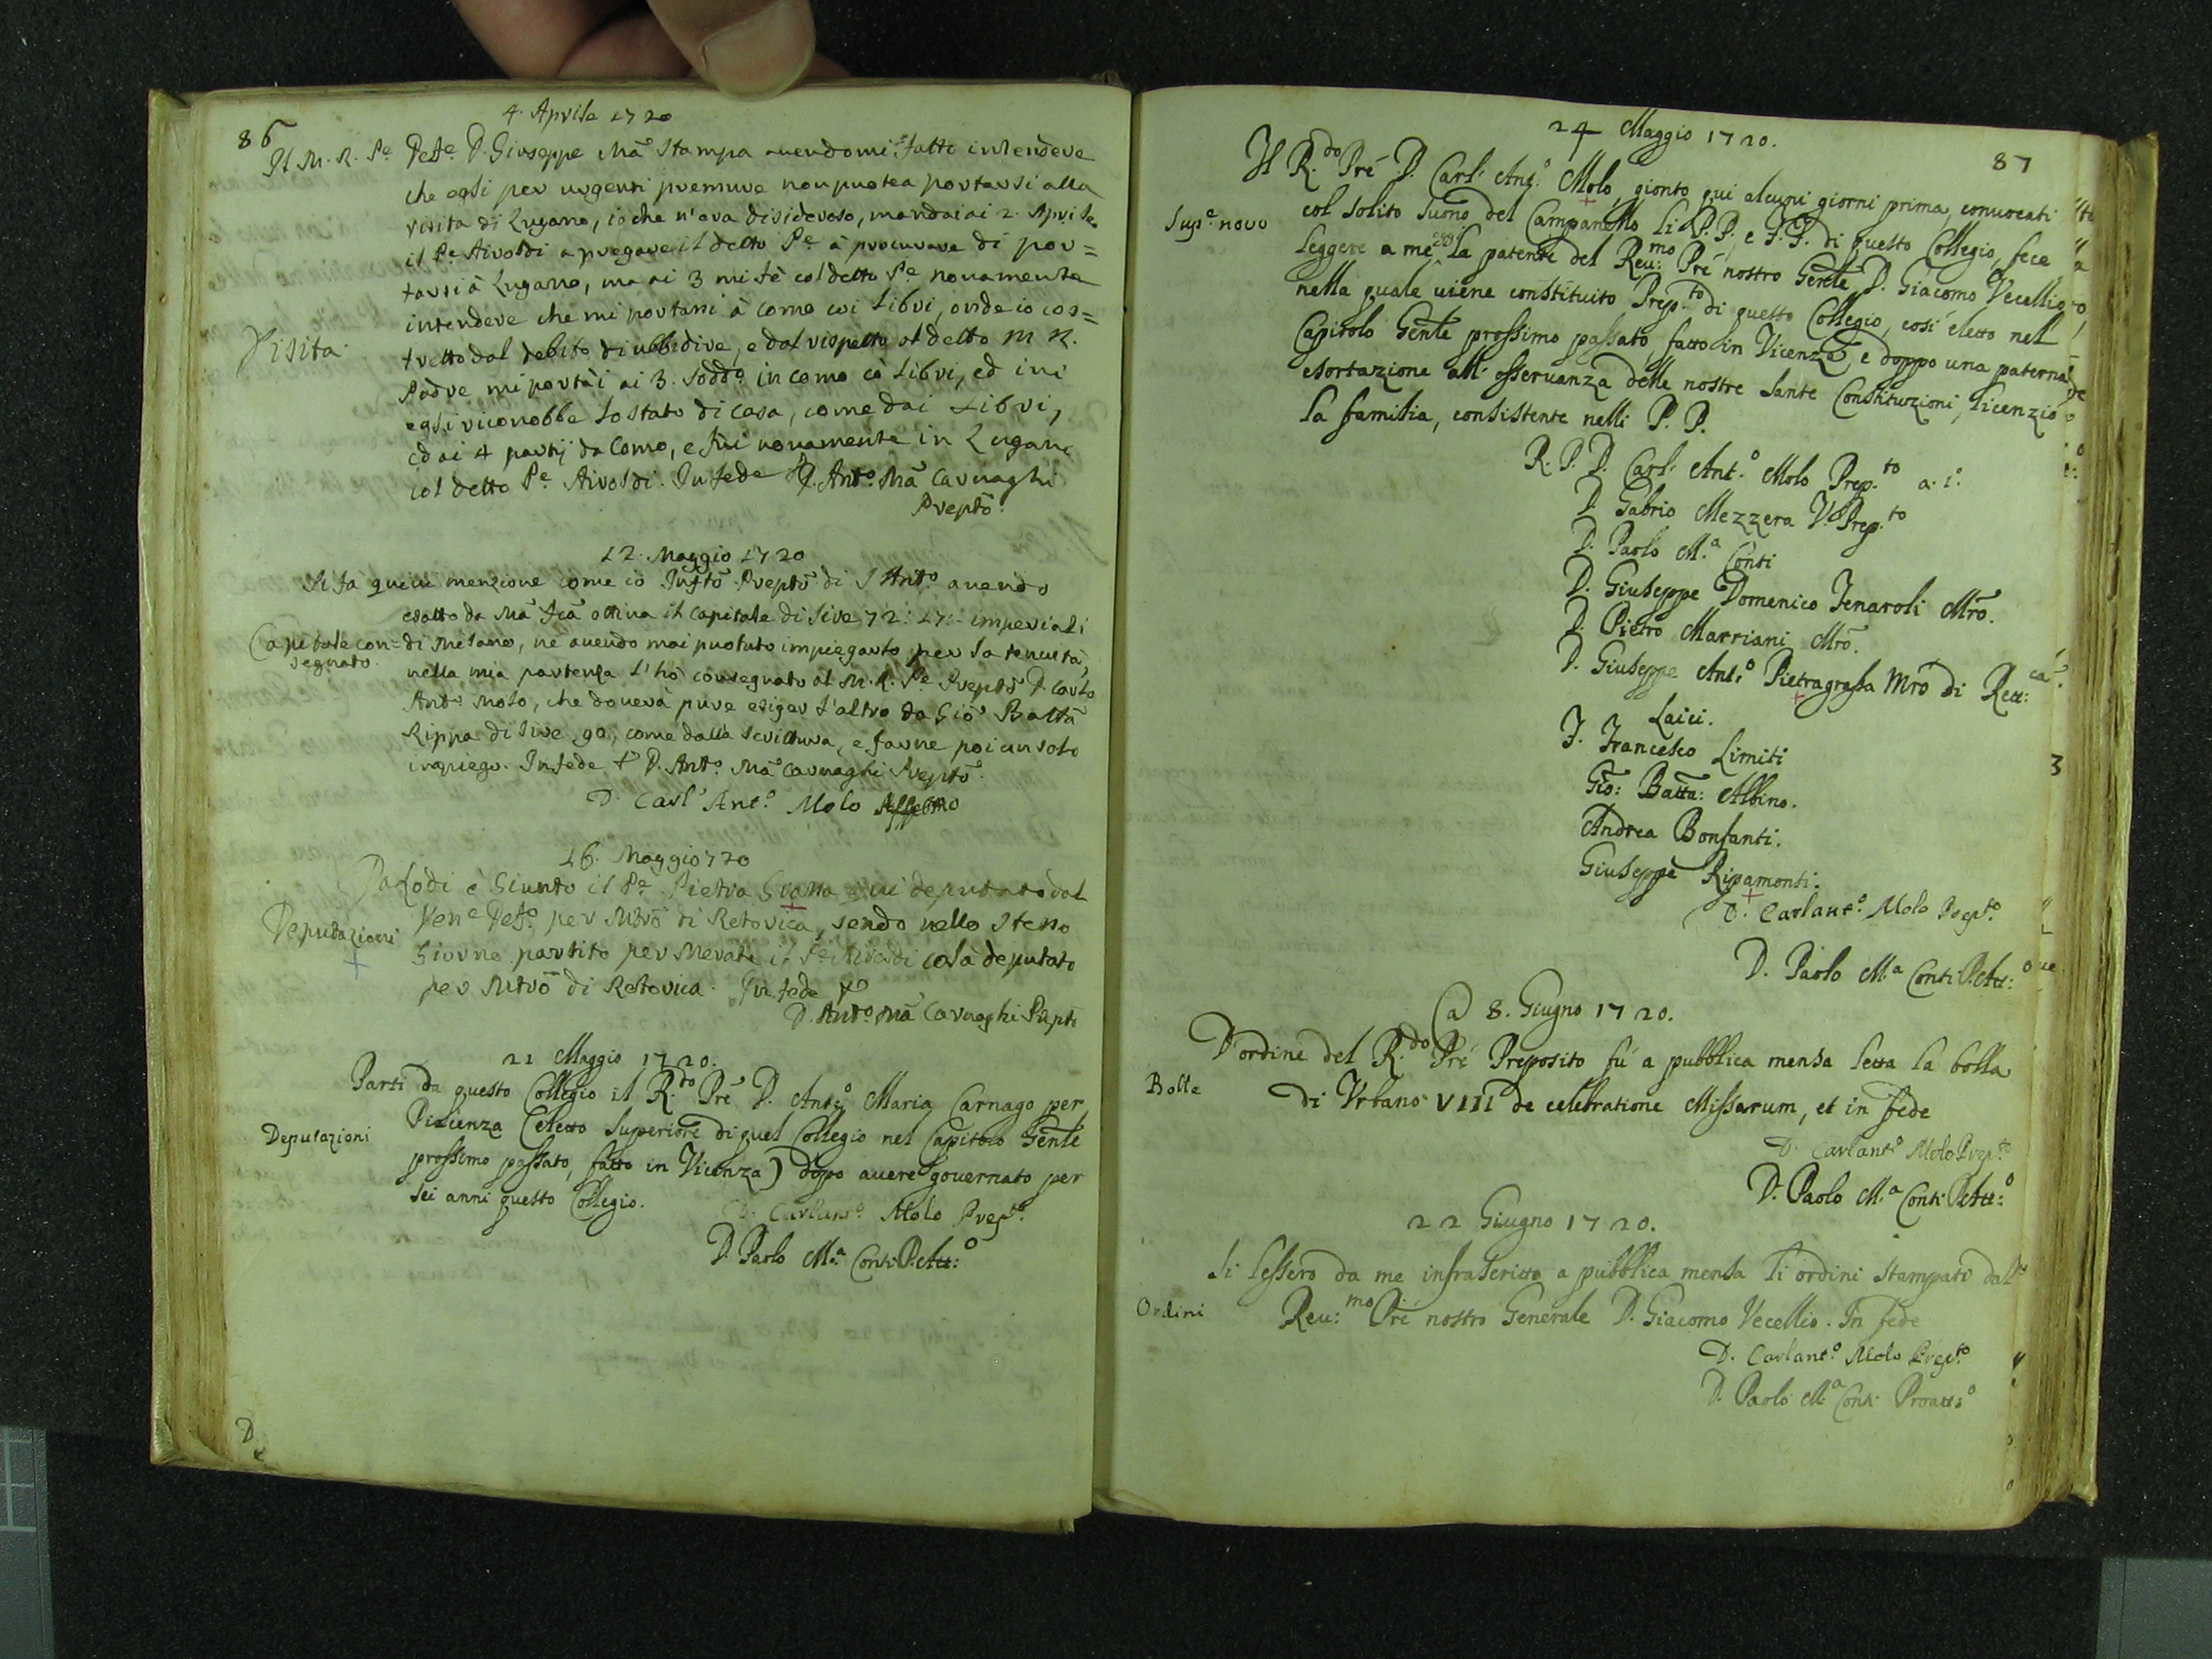 86
4. Aprile 1720
Il M. R. Pe Pose D. Giuseppe Ma Stampa auendomi fatto intendere
che egli per urgenti premure non puotea portarsi alla
visita di Lugano, io che n'era disideroso, mandai ai 2. Aprile
il Pe Airoldi a pregare il detto Pe à procurare di por=
tarsi à Lugano, ma ai 3 mi fè col detto Pe nouamente
intendere che mi portassi à Como coi Libri, onde io cos=
Visita
tretto dal debito di ubbidire, e dal rispetto al detto M. R.
Padre mi portài ai 3. soddo in Como cò Libri, ed ivi
egli riconobbe lo stato di casa, come dai Libri,
ed ai 4 partij da Como, e fui nouamente in Lugano
col detto Pe Airoldi. In fede D. Anto Ma Carnaghi
Prepto
12. Maggio 1720
Si fà quiui menzione come io Prepto di S Anto auendo
esatto da Ma il Capitale di Lire 72: 17:- imperiali
Capitale con=
segnato.
di Milano, nè auendo mai puotuto impiegarlo per la tenuità,
nella mia partenza l'hò consegnato al M. R. Pe Prepto D. Carlo
Anto Molo, che douerà pure esiger l'altro da Gio Batta
Rippa di Lire 90, come dalla scrittura, e farne poi un solo
impiego. In fede D. Anto Ma Carnaghi Prepto.
D. Carl' Anto Molo
16. Maggio 720
Da Lodi è Giunto il Pe Pietra Grassa qui deputato dal
Deputazioni
Vene per Mro di Retorica, sendo nello stesso
Giorno partito per Merate il Pe Airoldi colà deputato
per Mro di Retorica. In fede
D. Anto Ma Carnaghi Prepto
21 Maggio 1720.
Parti da questo Collegio il R.do Pre D. Anto Maria Carnago per
Deputazioni
Piacenza (eletto Superiore di quel Collegio nel Capitolo Genle
prossimo passato, fatto in Vicenza) dopo auere gouernato per
sei anni questo Collegio.
D. Carlanto Molo Prepto
D. Paolo M.a Conti P. Att:o
87
24 Maggio 1720.
Il R.do Pre D. Carl' Ant.o Molo, gionto qui alcuni giorni prima, conuocati
Supe nouo
col solito suono del Campanello li P.P. e F.F. di questo Collegio, fece
leggere a me la patente del Reu:mo Pre nostro Genle D. Giacomo Vecellio
nella quale uiene constituito Prep.to di questo Collegio, così eletto nel
Capitolo Genle prossimo passato, fatto in Vicenza, e doppo una paterna
esortazione all'osseruanza delle nostre sante Constituzioni, licenziò
la familia, consistente nelli P. P.
R. P. D. Carl' Ant.o Molo Prep.to a. i.o
D. Gabrio Mezzera V. Prep.to
D. Paolo M.a Conti
D. Giuseppe Domenico Fenaroli Mro.
D. Pietro Marriani Mro.
D. Giuseppe Ant.o Pietragrassa Mro di Ret:ca
Laici.
F. Francesco Limiti
Gio: Batta: Albino.
Andrea Bonfanti.
Giuseppe Ripamonti.
D. Carlant.o Molo Prepto
D. Paolo M.a Conti P. Att:o
a 8. Giugno 1720.
D'ordine del R.do Pre Preposito fù a pubblica mensa letta la bolla
Bolla
di Vrbano VIII de celebratione Missarum, et in fede
D. Carlanto Molo Prep.to
D. Paolo M.a Conti P. Att:o
22 Giugno 1720.
Si lessero da me infrascritto a pubblica mensa li ordini stampati dal
Ordini
Reu:mo Pre nostro Generale D. Giacomo Vecellio. In fede
D. Carlant.o Molo Prep.to
D. Paolo M.a Conti Proatt:o